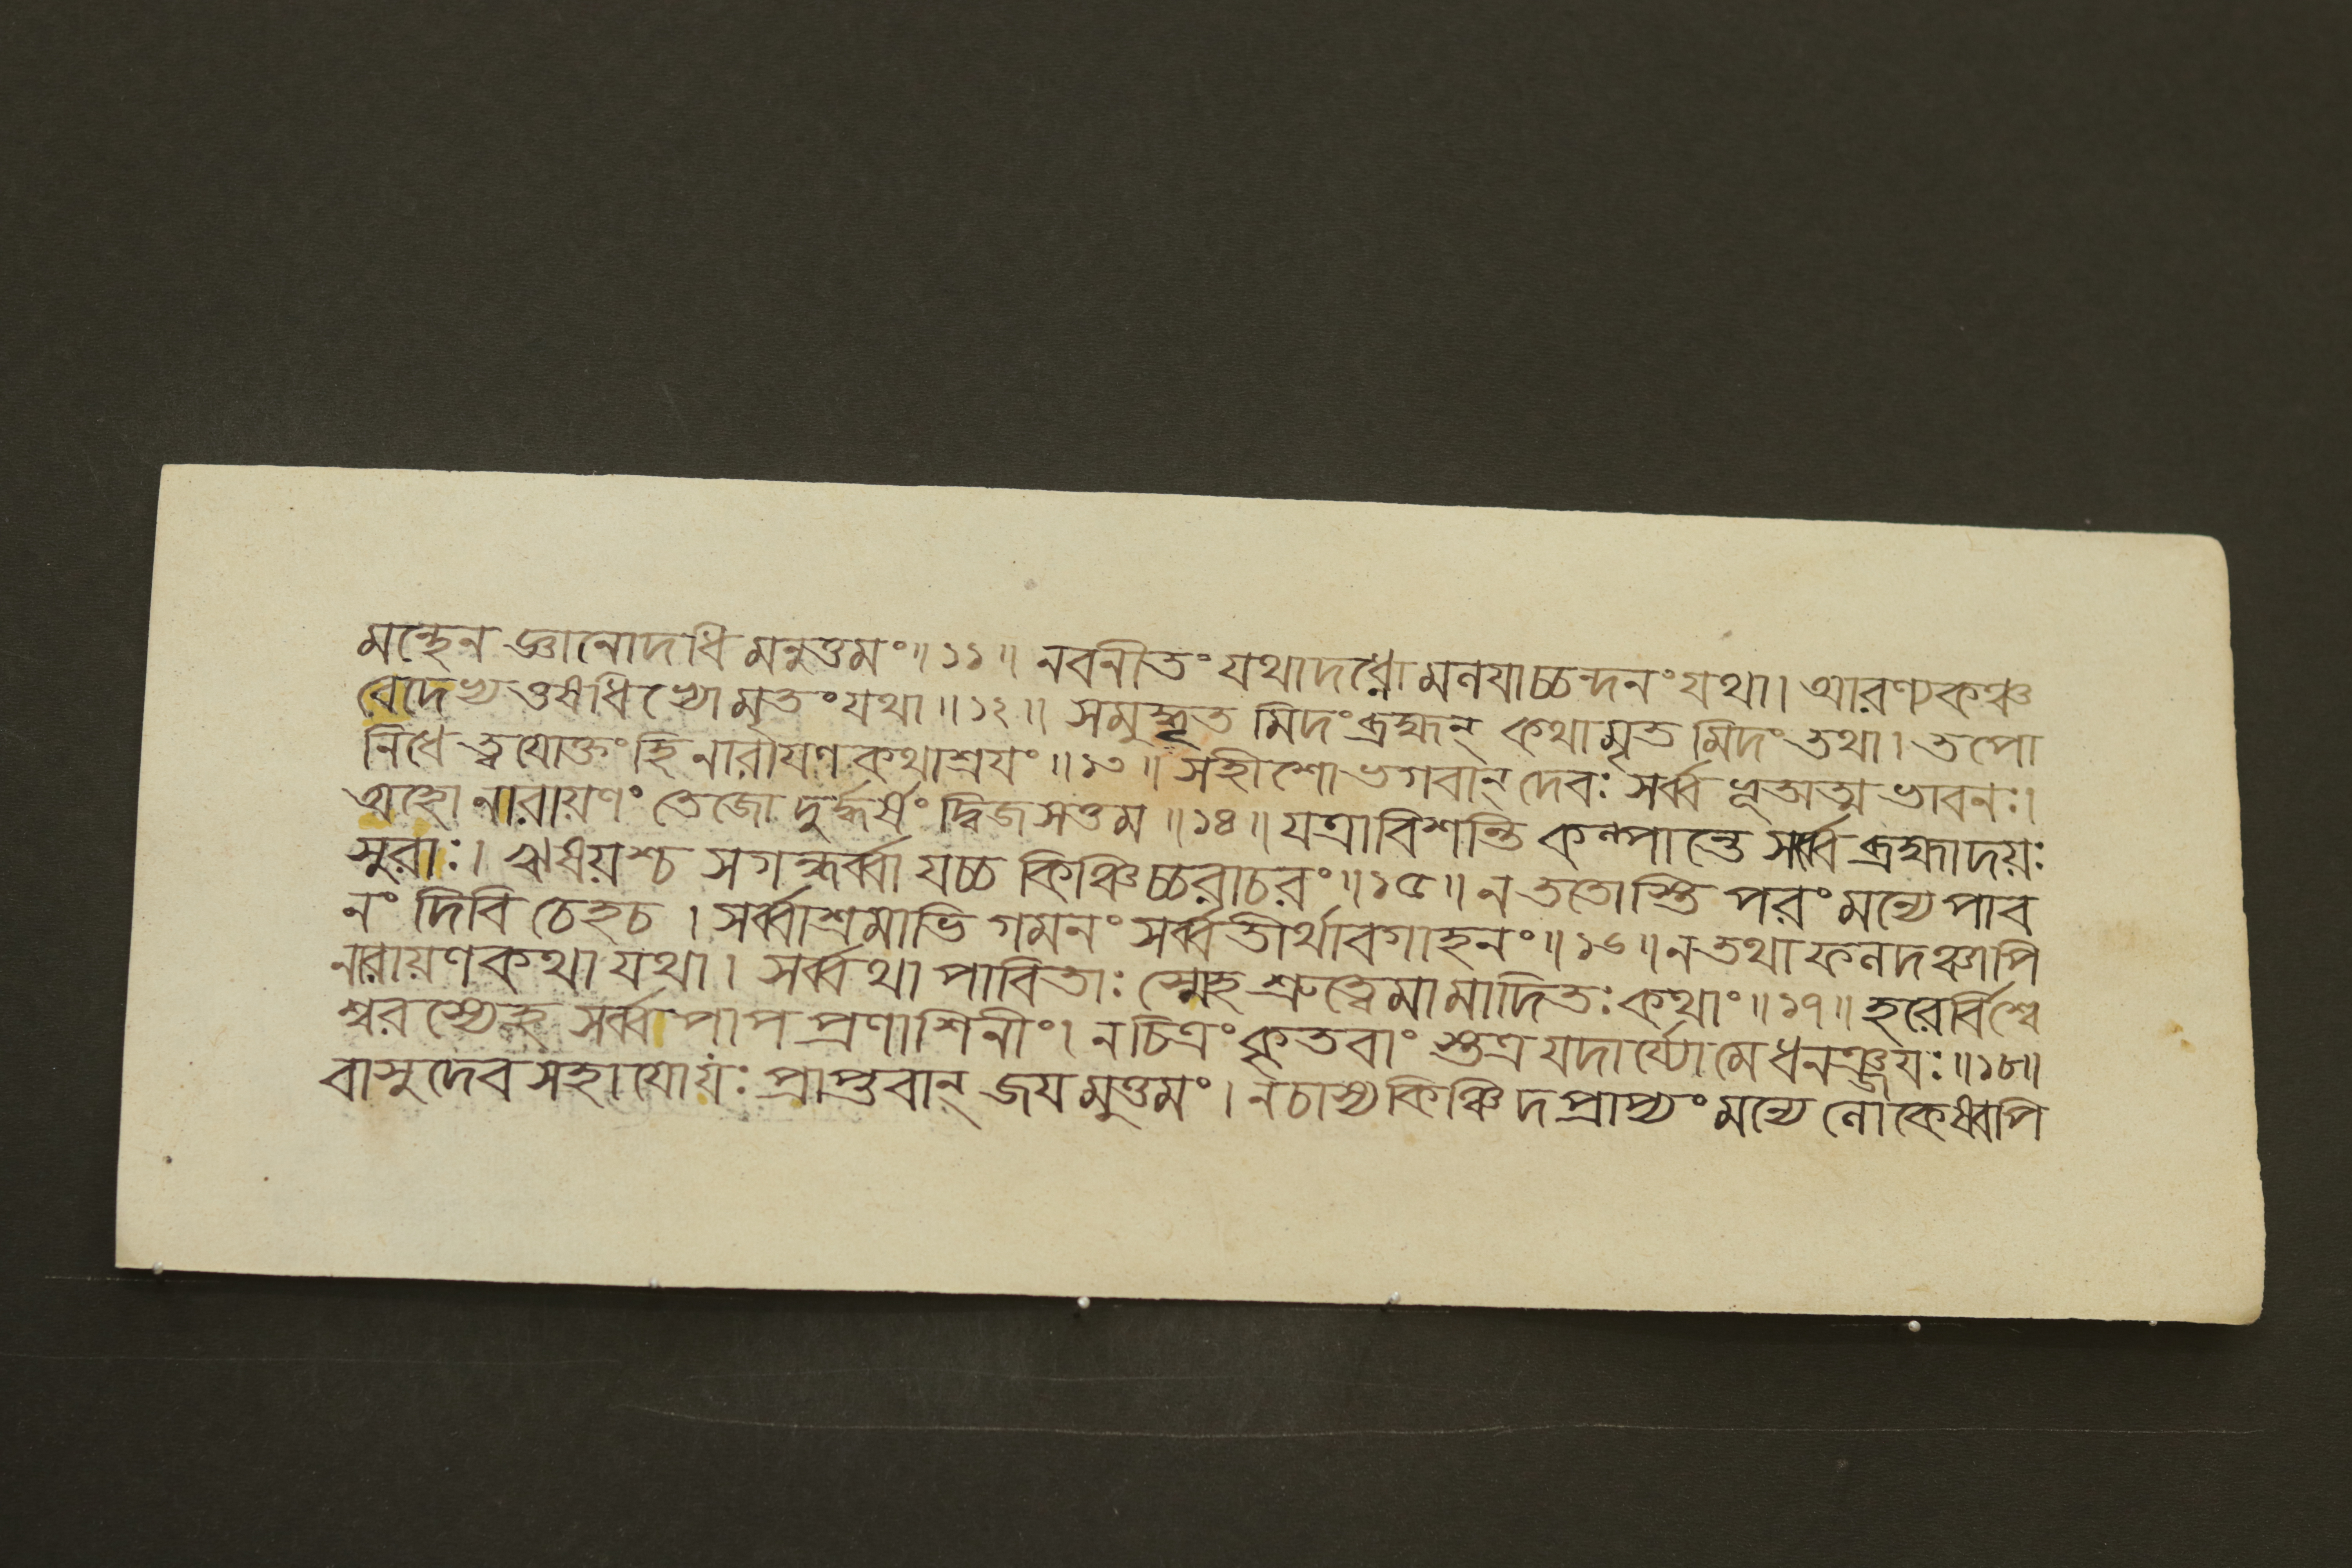 মন্থেন জ্ঞানোদধি মনুত্তমং॥১১॥ নবনীতং যথাদধ্নো মলযাচ্চন্দনং যথা। আরণ্যকঞ্চ
বেদেভ্য ওষধিভ্যো মৃতং যথা॥১২॥ সমুদ্ধৃত মিদং ব্রহ্মন্ কথামৃত মিদং তথা। তপো
নিধে ত্বযোক্তং হি নারাযণ কথাশ্রযং॥১৩॥ সহীশো ভগবান্ দেবঃ সর্ব্ব ভূতাত্ম ভাবনঃ।
অহো নারায়ণং তেজো দুর্দ্ধর্ষং দ্বিজসত্তম॥১৪॥ যত্রাবিশন্তি কল্পান্তে সর্ব্বে ব্রহ্মাদয়ঃ
সুরাঃ। ঋষয়শ্চ সগন্ধর্ব্বা যচ্চ কিঞ্চিচ্চরাচরং॥১৫॥ ন ততোস্তি পরং মন্যে পাব
নং দিবি চেহচ। সর্ব্বাশ্রমাভি গমনং সর্ব্বতীর্থাবগাহনং॥১৬॥ ন তথা ফলদঞ্চাপি
নারায়ণকথা যথা। সর্ব্বথা পাবিতাঃ স্মেহ শ্রুত্বেমামাদিতঃ কথাং॥১৭॥ হরের্বিশ্বে
শ্বরস্যেহ সর্ব্বপাপ প্রণাশিনীং। নচিত্রং কৃতবাং স্তত্র যদার্য্যো মে ধনঞ্জযঃ॥১৮॥
বাসুদেব সহাযোযঃ প্রাপ্তবান্ জযমুত্তমং। নচাস্য কিঞ্চিদপ্রাপ্যং মন্যে লোকেষ্বপি